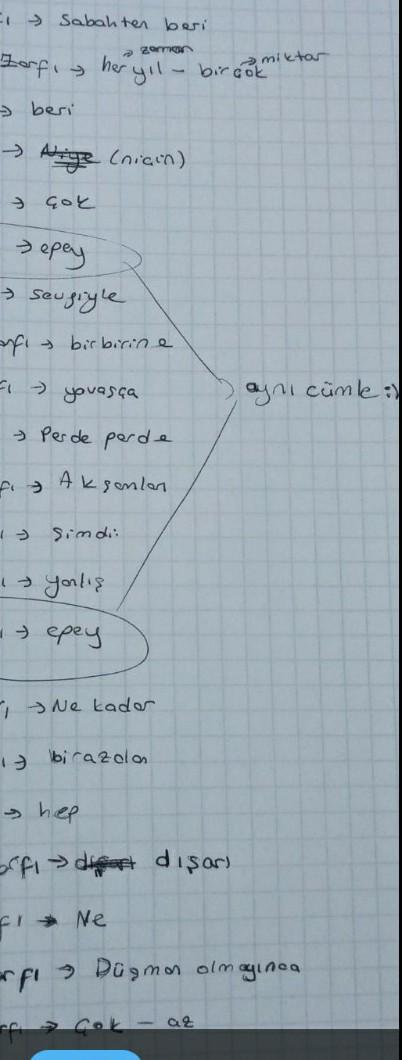 ı → Sabahtan beri
Zarfı → her yıl → zaman – birçok → miktar
→ beri
→ (niçin)
→ çok
→ epey
→ sevgiyle
rfı → birbirine
fı → yavaşça
aynı cümle :)
→ Perde perde
fı → Akşamları
ı → şimdi
ı → yanlış
ı → epey
ı → Ne kadar
ı → birazdan
→ hep
rfı → dışarı
fı → Ne
rfı → Düşman olmayınca
rfı → Çok – az